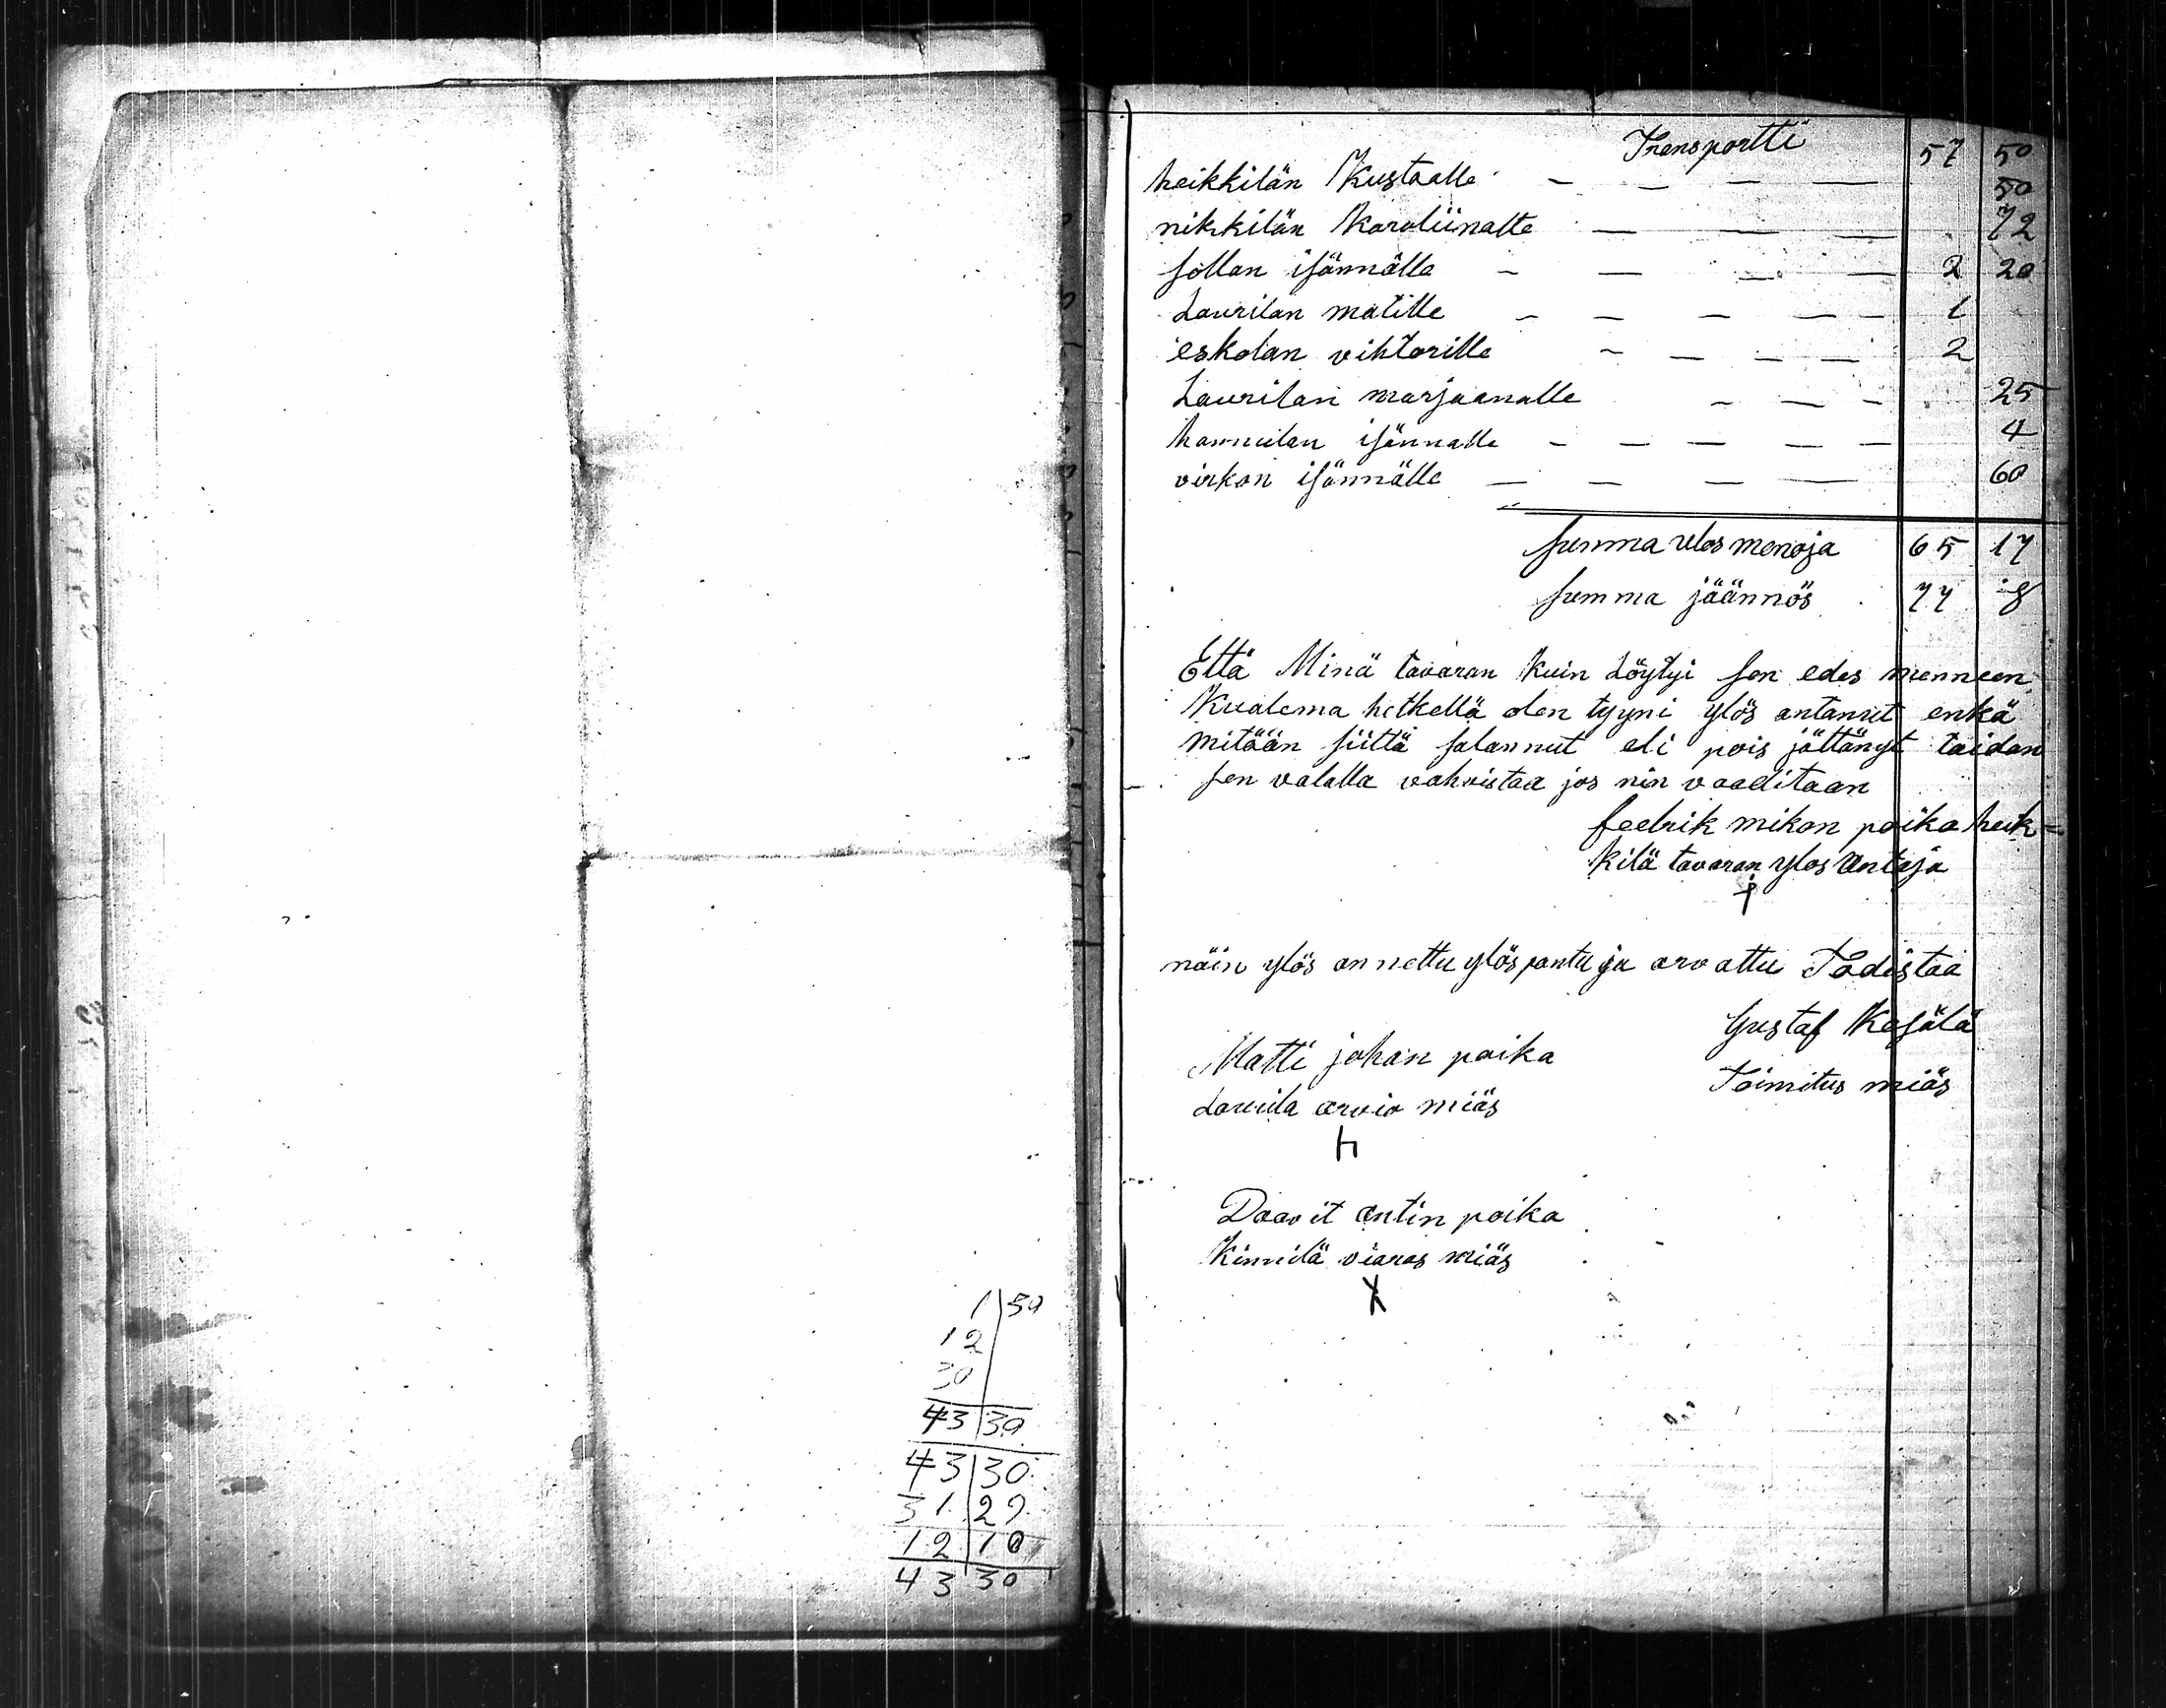 1 50
12
30
43 30
43 30
31 20
12 10
43 30
Trensportti 57 50
heikkilän Kustaalle — — — — 50
nikkilän Karoliinalle — — — 72
sollan isännälle — — — — 2 20
Laurilan matille — — — — — 1
eskolan vihtorille — — — — 2
Laurilan marjaanalle — — — 25
hannulan isännalle — — — — — 4
virkon isännälle — — — — 60
summa ulos menoja 65 17
summa jäännös 77 8
Että Minä tavaran kuin Löytyi sen edes menneen
Kualema hetkellä olen tyyni ylös antanut enkä
mitään siittä salannut eli pois jättänyt taidan
sen valalla vahvistaa jos nin vaaditaan
feedrik mikon poika heik=
kilä tavaran ylos antaja
näin ylös annettu ylöspantu ja arvattu Todistaa
Gustaf Kasälä
Toimitus miäs
Matti johan poika
Laurila arvio miäs
Daavit antin poika
Kinnilä viaras miäs